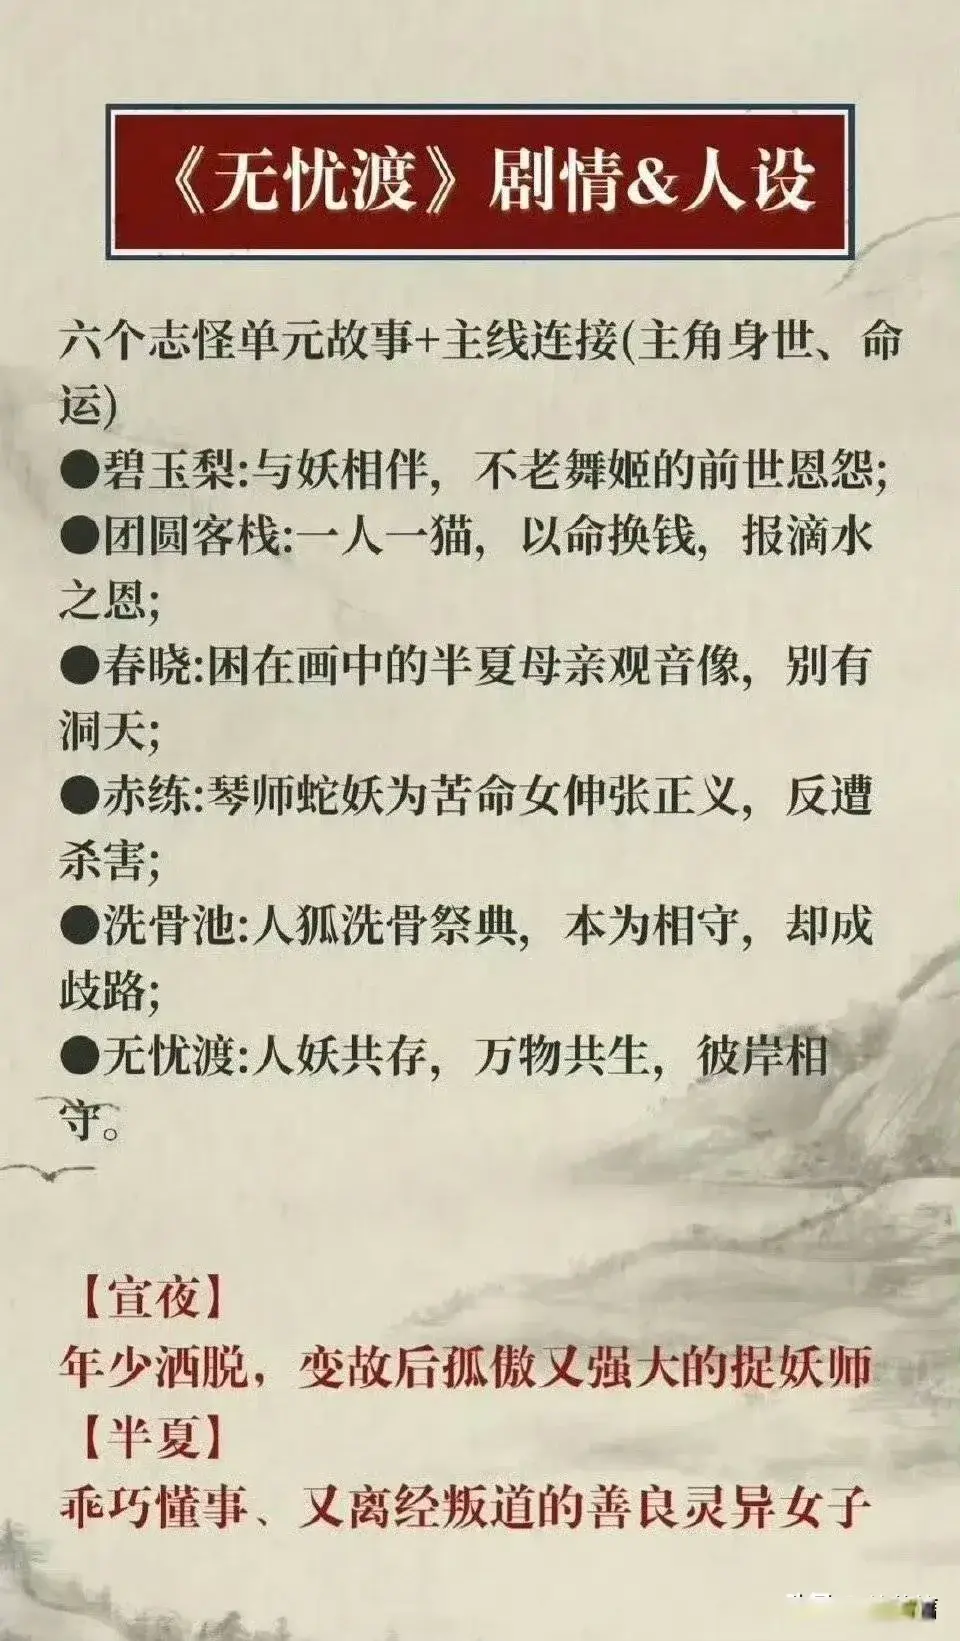 《无忧渡》剧情&人设
六个志怪单元故事+主线连接(主角身世、命
运)
●碧玉梨:与妖相伴，不老舞姬的前世恩怨;
●团圆客栈:一人一猫，以命换钱，报滴水
之恩;
●春晓:困在画中的半夏母亲观音像，别有
洞天;
●赤练:琴师蛇妖为苦命女伸张正义，反遭
杀害;
●洗骨池:人狐洗骨祭典，本为相守，却成
歧路;
●无忧渡:人妖共存，万物共生，彼岸相
守。
【宣夜】
年少洒脱，变故后孤傲又强大的捉妖师
【半夏】
乖巧懂事、又离经叛道的善良灵异女子